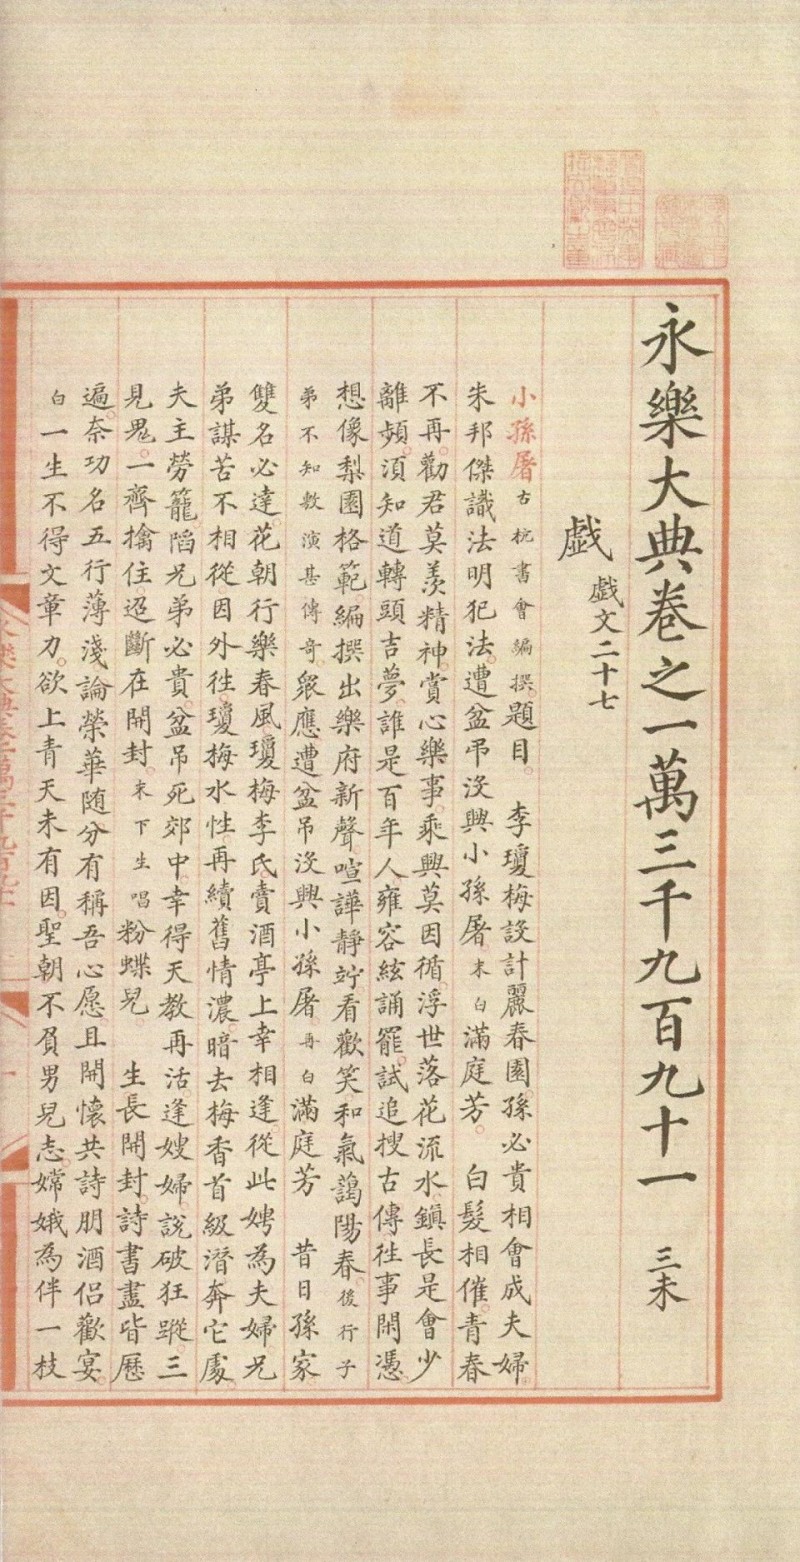 永樂大典卷之一萬三千九百九十一　三未
戲　戲文二十七
小孫屠古杭書會編撰。題目。　李瓊梅設計麗春園。孫必貴相會成夫婦。
朱邦傑識法明犯法。遭盆弔沒興小孫屠。末白滿庭芳。　白髮相催。青春
不再。勸君莫羨精神。賞心樂事。乘興莫因循。浮世落花流水。鎮長是會少
離頻。須知道轉頭吉夢。誰是百年人雍容絃誦罷。試追搜古傳。往事閑憑。
想像梨園格範。編撰出樂府新聲。喧譁靜竚看歡笑。和氣藹陽春。後行子
弟不知敷演甚傳奇。衆應遭盆吊沒興小孫屠。再白滿庭芳　昔日孫家
雙名必達。花朝行樂春風。瓊梅李氏。賣酒亭上幸相逢。從此娉為夫婦。兄
弟謀苦不相從。因外徃。瓊梅水性。再續舊情濃。暗去梅香首級。潛奔它處。
夫主勞籠。陷兄弟必貴。盆吊死郊中。幸得天教再活。逢嫂婦。說破狂蹤。三
見鬼。一齊擒住。迢斷在開封。末下生唱粉蝶兒。　生長開封。詩書盡皆歷
遍。奈功名五行薄淺。論榮華随分有稱吾心愿。且開懷共詩朋酒侶歡宴。
白一生不得文章力。欲上青天未有因。聖朝不負男兒志。嫦娥為伴一枝